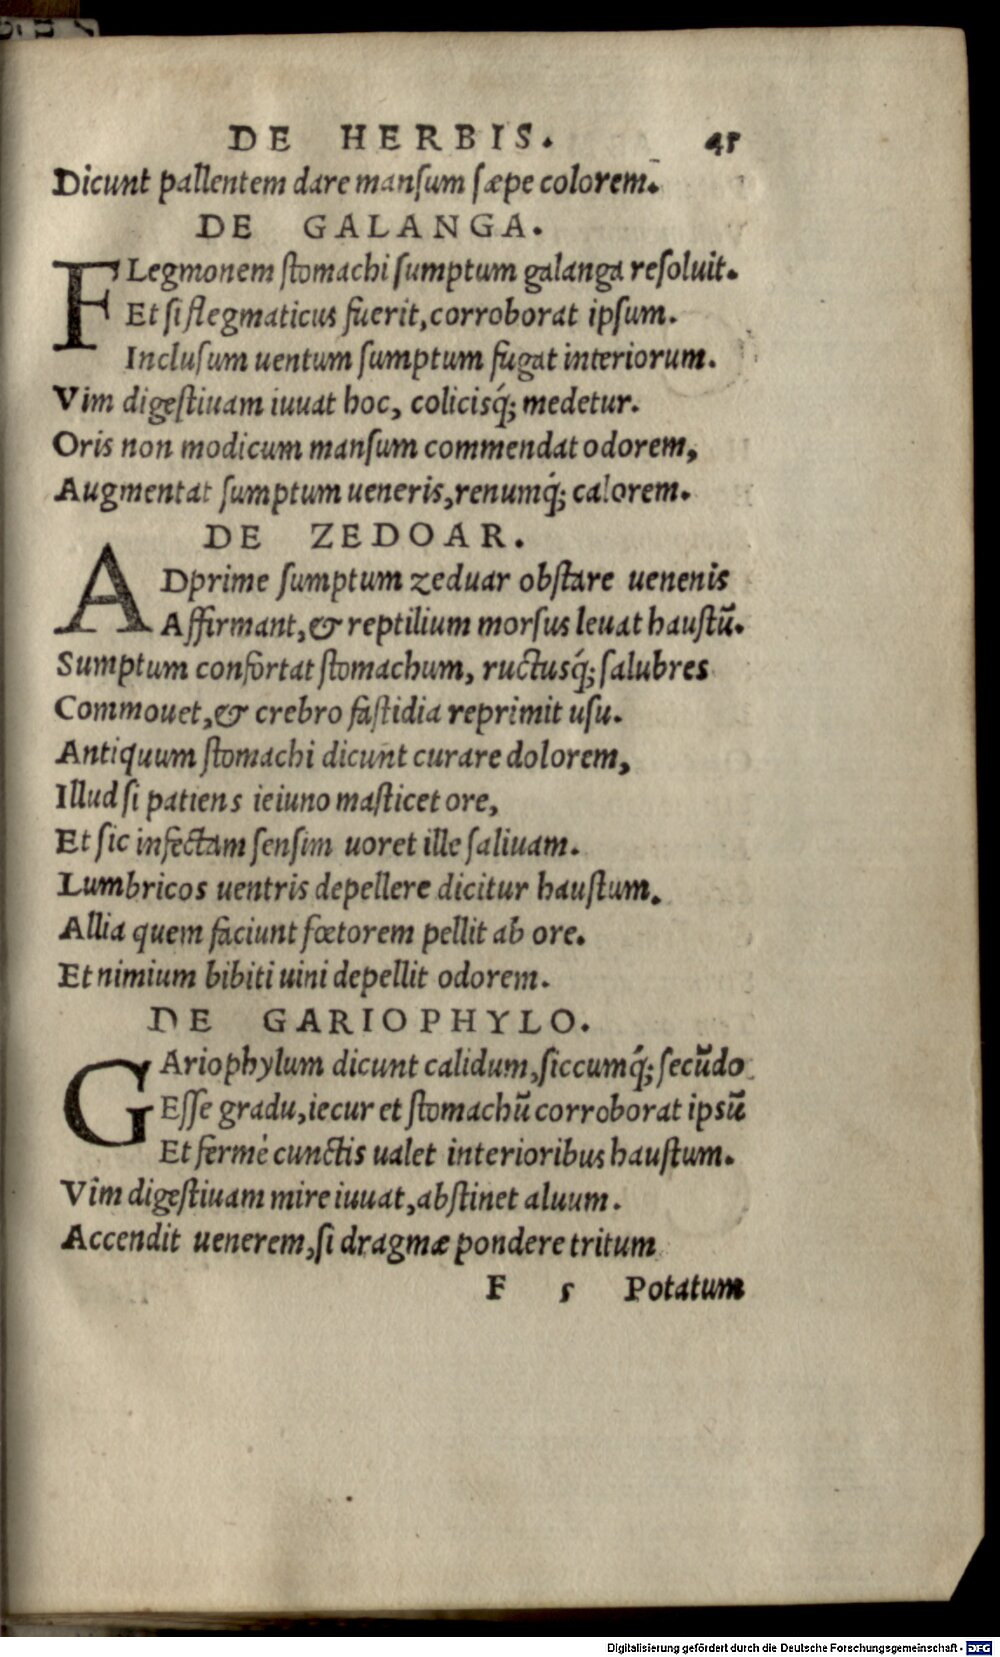 DE HERBIS. 45
Dicunt pallentem dare manſum ſæpe colorem.
DE GALANGA.
FLegmonem ſtomachi ſumptum galanga reſoluit.
Et ſi flegmaticus fuerit, corroborat ipſum.
Incluſum uentum ſumptum fugat interiorum.
Vim digeſtiuam iuuat hoc, colicisq́; medetur.
Oris non modicum manſum commendat odorem,
Augmentat ſumptum ueneris, renumq́; calorem.
DE ZEDOAR.
ADprime ſumptum zeduar obſtare uenenis
Affirmant, & reptilium morſus leuat hauſtū.
Sumptum confortat ſtomachum, ructusq́; ſalubres
Commouet, & crebro faſtidia reprimit uſu.
Antiquum ſtomachi dicunt curare dolorem,
Illud ſi patiens ieiuno maſticet ore,
Et ſic infectam ſenſim uoret ille ſaliuam.
Lumbricos uentris depellere dicitur hauſtum.
Allia quem faciunt fœtorem pellit ab ore.
Et nimium bibiti uini depellit odorem.
DE GARIOPHYLO.
GAriophylum dicunt calidum, ſiccumq́; ſecūdo
Eſſe gradu, iecur et ſtomachū corroborat ipsū
Et fermè cunctis ualet interioribus hauſtum.
Vim digeſtiuam mire iuuat, abſtinet aluum.
Accendit uenerem, ſi dragmæ pondere tritum
F 5 Potatum
Digitalisierung gefördert durch die Deutsche Forschungsgemeinschaft - DFG